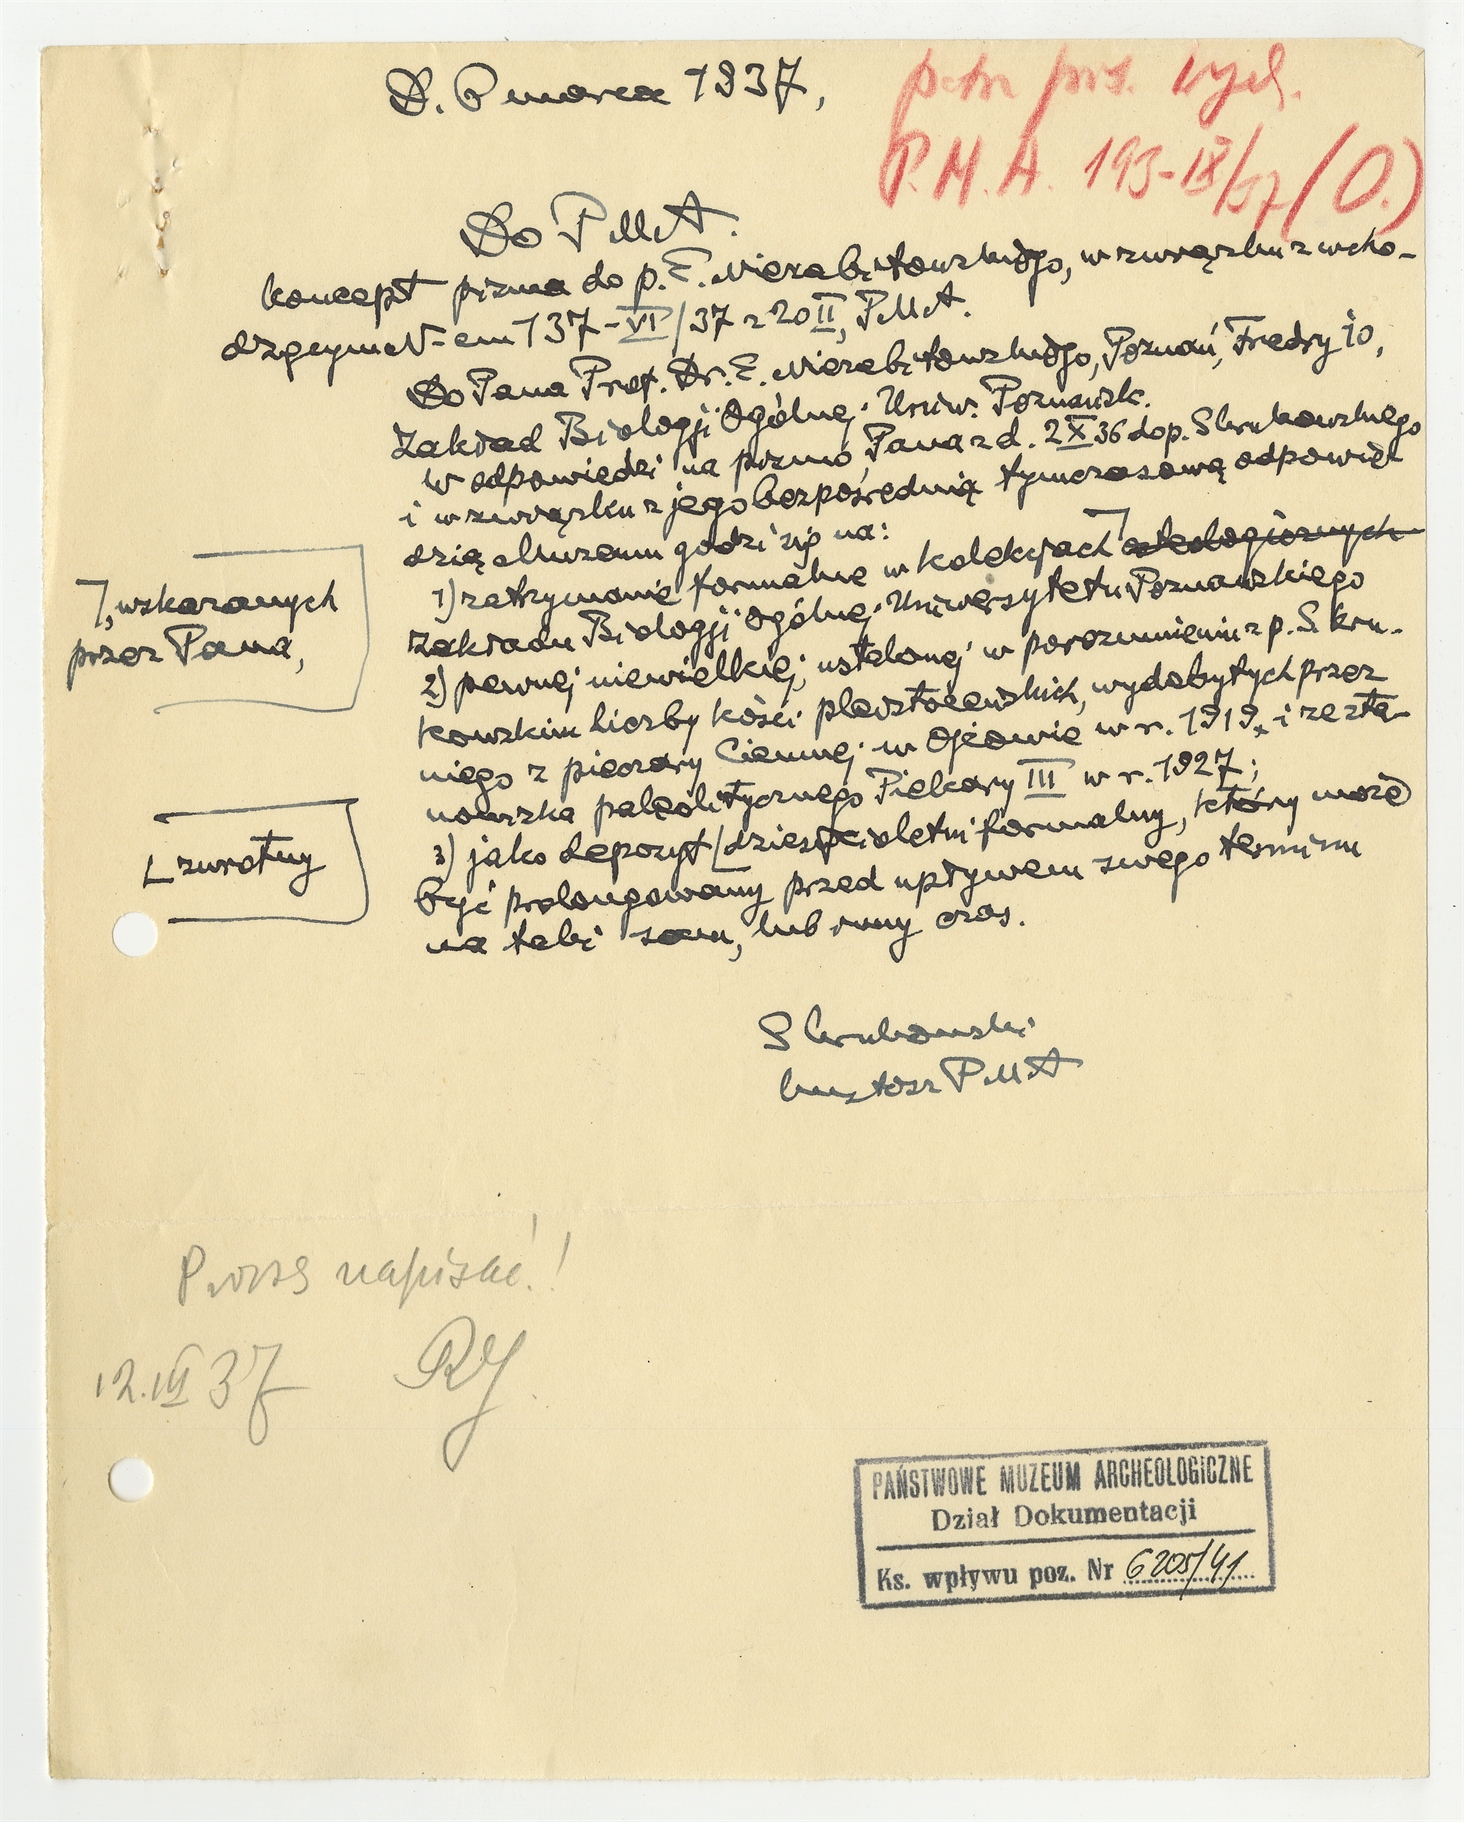 D. 6 marca 1937,
P.M.A. 193-IX/37 (O.)
Do PMA.
koncept pisma do p. E. Niezabitowskiego, w związku z wcho-
dzącym N-em 137-VI/37 z 20 II, PMA.
Do Pana Prof. Dr. E. Niezabitowskiego, Poznań, Fredry 10,
Zakład Biologji Ogólnej Uniw. Poznańsk.
W odpowiedzi na pismo Pana z d. 2 X 36 do p. S. Krukowskiego
i w związku z jego bezpośrednią tymczasową odpowie-
dzią Muzeum godzi się na:
1) zatrzymanie formalne w kolekcjach ⌉ osteologicznych
⌉, wskazanych
przez Pana,
Zakładu Biologji Ogólnej Uniwersytetu Poznańskiego
2) pewnej niewielkiej, ustalonej w porozumieniu z p. S. Kru-
kowskim liczby kości plejstoceńskich, wydobytych przez
niego z pieczary Ciemnej w Ojcowie w r. 1919, i ze sta-
nowiska paleolitycznego Piekary III w r. 1927;
3) jako depozyt ⌊ dziesięcioletni formalny, który może
⌊ zwrotny
być prolongowany przed upływem swego terminu
na taki sam, lub inny czas.
S Krukowski
kustosz PMA
Proszę napisać!
12.III 37 RJ
PAŃSTWOWE MUZEUM ARCHEOLOGICZNE
Dział Dokumentacji
Ks. wpływu poz. Nr 6205/41